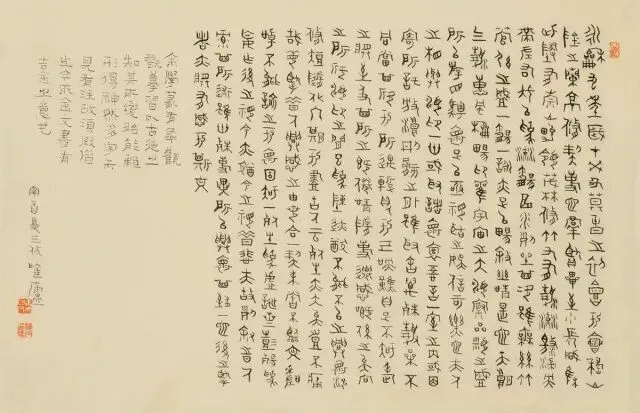 永龢九年歲在癸丑莫春之初會于會稽山
陰之蘭亭修禊事也群賢畢至少長咸集
此地有崇山峻領茂林修竹又有清流激湍映
帶左右引以爲流觴曲水列坐其次雖無絲竹
管弦之盛一觴一詠亦足以暢敘幽情是日也天朗
氣清惠風和暢仰觀宇宙之大俯察品類之盛
所以游目騁懷足以極視聽之娛信可樂也夫人
之相與俯仰一世或取諸懷抱晤言一室之內或因
寄所託放浪形骸之外雖取舍萬殊靜躁不
同當其欣於所遇暫得於己快然自足不知老
之將至及其所之既倦情隨事遷感慨係之矣向
之所欣俛仰之間以爲陳跡猶不能不以之興懷況
修短隨化終期於盡古人云死生亦大矣豈不痛
哉每攬昔人興感之由若合一契未嘗不臨文嗟
悼不能喻之於懷固知一死生爲虛誕齊彭殤爲
妄作後之視今亦猶今之視昔悲夫故列敘時人
錄其所述雖世殊事異所以興懷其致一也後之攬
者亦將有感於斯文
余學篆有年觀
知其所變始能離
形得神然字不
見者須假借
金文書有
吉金之意也